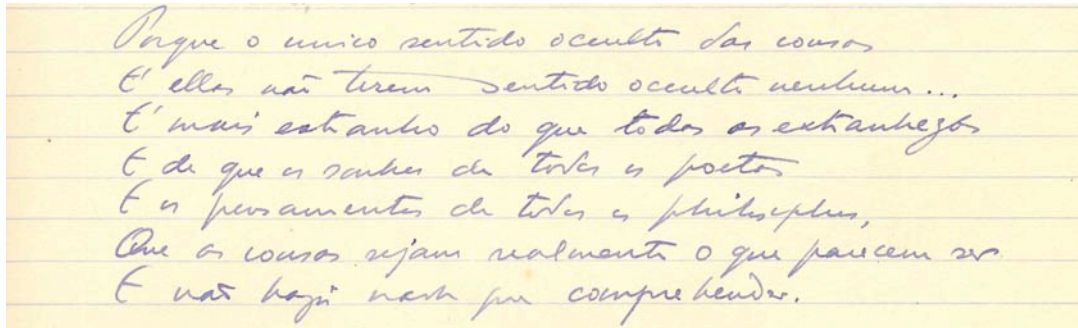 Porque o unico sentido occulto das cousas
É ellas não terem sentido occulto nenhum...
É mais extranho do que todas as extranhezas
E do que os sonhos de todos os poetas
E os pensamentos de todos os philosophos,
Que as cousas sejam realmente o que parecem ser
E não haja nada que comprehender.